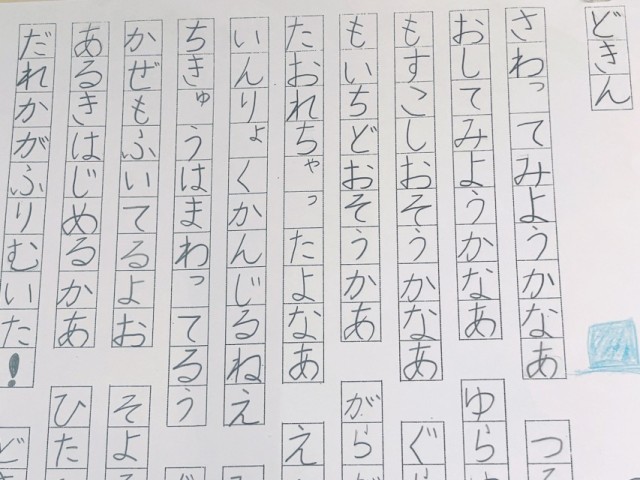 どきん
さわってみようかなあ つ
おしてみようかなあ ゆら
もすこしおそうかなあ ぐら
もいちどおそうかあ がら
たおれちゃったよなあ え
いんりょくかんじるねえ
ちきゅうはまわってるう
かぜもふいてるよお そよ
あるきはじめるかあ ひた
だれかがふりむいた! ど